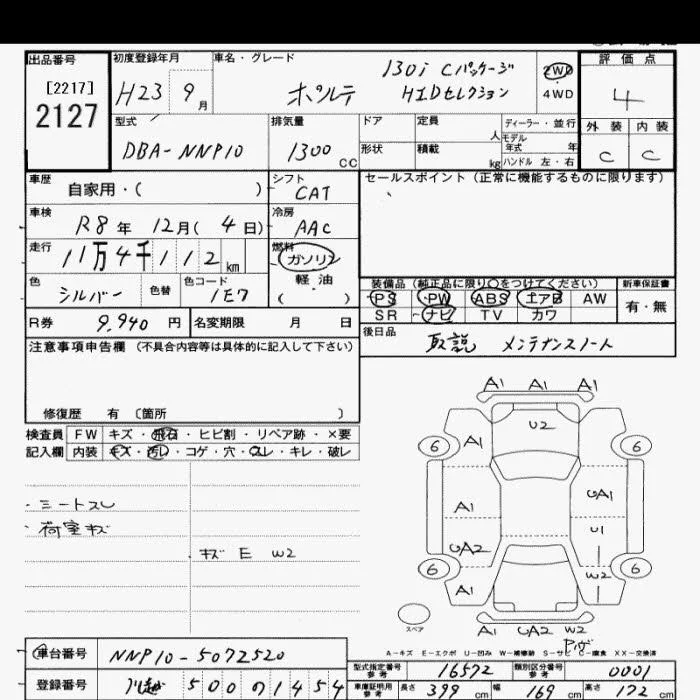 出品番号 初度登録年月 車名・グレード 評価点
[2217] 130i Cパッケージ 2WD
2127 H23 9月 ポルテ HIDセレクション 4WD 4
型式 排気量 ドア 定員 人 ディーラー・並行 外装 内装
モデル年式 年
DBA-NNP10 1300cc 形状 積載 kg ハンドル 左・右 C C
車歴 自家用・( ) シフト CAT セールスポイント(正常に機能するものに限ります)
車検 R8年 12月(4日) 冷房 AAC
走行 11万4千112km 燃料 ガソリン
軽油
( )
色 シルバー 色替 色コード 1E7
装備品(純正品に限り○をつけてください) 新車保証書
PS PW ABS エアB AW 有・無
SR ナビ TV カワ
R券 9,940円 名変期限 月 日
後日品 取説 メンテナンスノート
注意事項申告欄(不具合内容等は具体的に記入して下さい)
修復歴 有 〔箇所 〕
検査員 FW キズ・飛石・ヒビ割・リペア跡・×要
記入欄 内装 キズ・汚レ・コゲ・穴・スレ・キレ・破レ
・シートスレ
・荷室キズ
・キズ E W2
A1 A1 A1
U2
6 A1 6
A1 UA1
U1
UA2
6 W2 6
A1
スペア A1 UA2 W2
A-キズ E-エクボ U-凹み W-補修跡 S-サビ C-腐食 XX-交換済
車台番号 NNP10-5072520
型式指定番号 参考 16572 類別区分番号 参考 0001
登録番号 川越 500 の 1454
車庫証明用 参考 長さ 399cm 幅 169cm 高さ 172cm